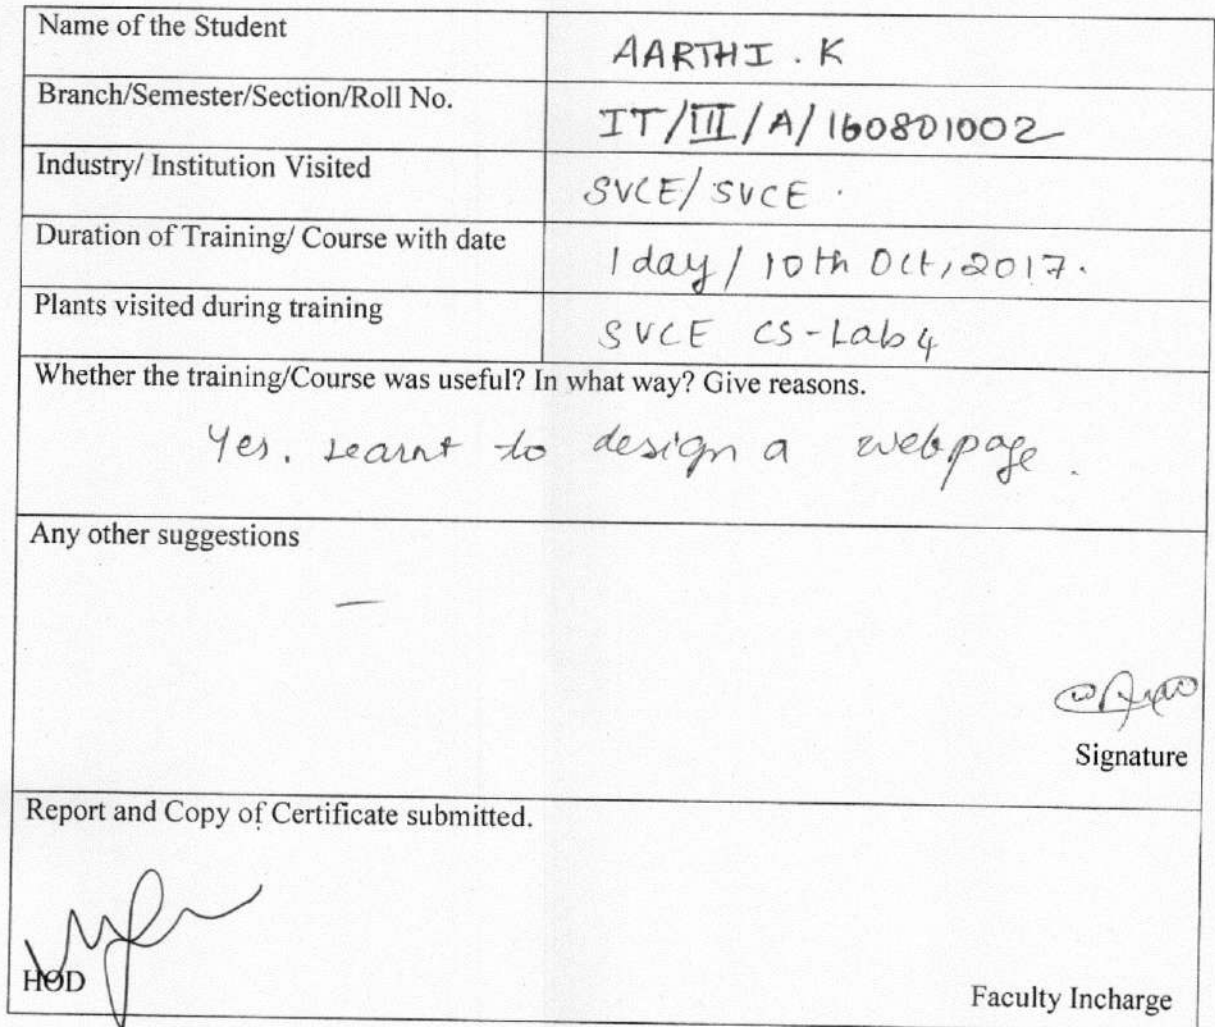 Name of the Student
AARTHI . K
Branch/Semester/Section/Roll No.
IT/III/A/160801002
Industry/ Institution Visited
SVCE/ SVCE .
Duration of Training/ Course with date
1 day / 10th Oct, 2017.
Plants visited during training
SVCE CS-Lab 4
Whether the training/Course was useful? In what way? Give reasons.
Yes. Learnt to design a webpage.
Any other suggestions
—
Signature
Report and Copy of Certificate submitted.
HOD
Faculty Incharge